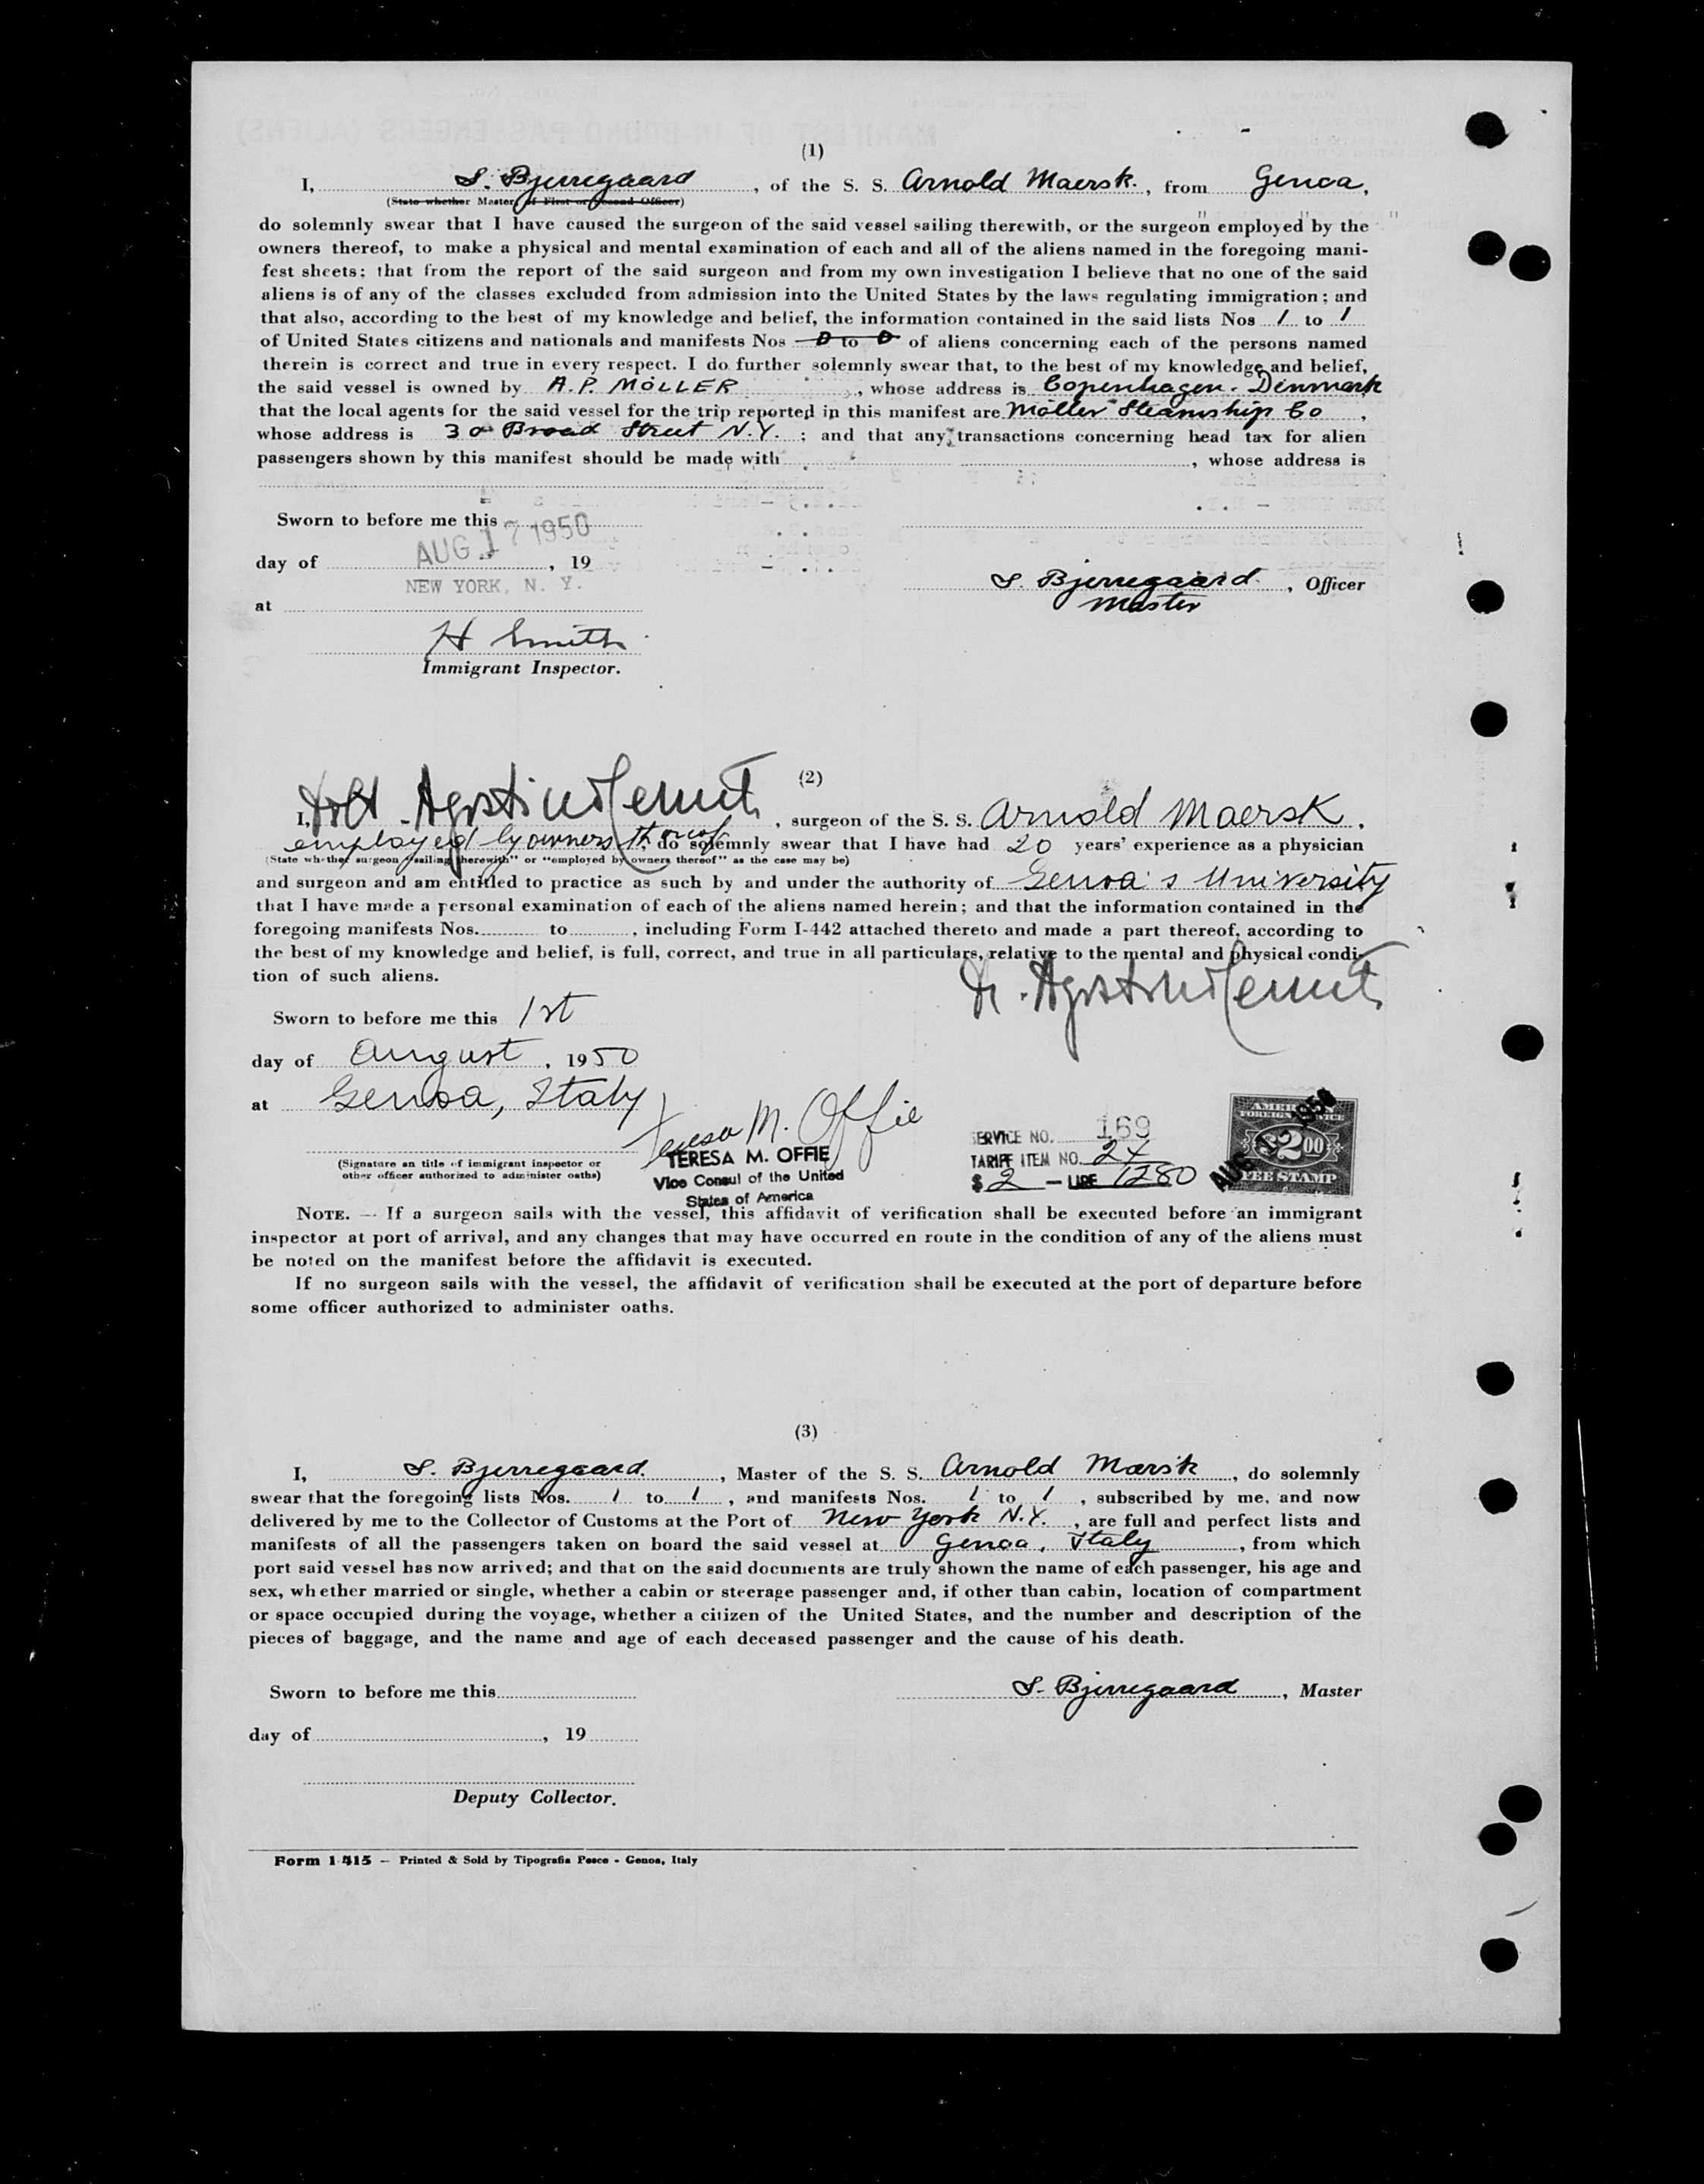 (1)
I, S. Bjerregaard, of the S. S. Arnold Maersk., from Genoa,
(State whether Master, of First or Second Officer)
do solemnly swear that I have caused the surgeon of the said vessel sailing therewith, or the surgeon employed by the
owners thereof, to make a physical and mental examination of each and all of the aliens named in the foregoing mani-
fest sheets; that from the report of the said surgeon and from my own investigation I believe that no one of the said
aliens is of any of the classes excluded from admission into the United States by the laws regulating immigration; and
that also, according to the best of my knowledge and belief, the information contained in the said lists Nos 1 to 1
of United States citizens and nationals and manifests Nos 0 to 0 of aliens concerning each of the persons named
therein is correct and true in every respect. I do further solemnly swear that, to the best of my knowledge and belief,
the said vessel is owned by A.P. MÖLLER, whose address is Copenhagen. Dinmark
that the local agents for the said vessel for the trip reported in this manifest are Möller Steamship Co,
whose address is 30 Broad Street N.Y. ; and that any transactions concerning head tax for alien
passengers shown by this manifest should be made with , whose address is
Sworn to before me this
AUG 17 1950
day of , 19
NEW YORK, N. Y.
S. Bjerregaard, Officer
Master
at
H Smith
Immigrant Inspector.
(2)
I, Dott. Agostino , surgeon of the S. S. Arnold Maersk,
employed by owners thereof, do solemnly swear that I have had 20 years' experience as a physician
(State whether surgeon "sailing therewith" or "employed by owners thereof" as the case may be)
and surgeon and am entitled to practice as such by and under the authority of Genoa's University
that I have made a personal examination of each of the aliens named herein; and that the information contained in the
foregoing manifests Nos. to , including Form I-442 attached thereto and made a part thereof, according to
the best of my knowledge and belief, is full, correct, and true in all particulars, relative to the mental and physical condi-
tion of such aliens.
Dr. Agostino
Sworn to before me this 1st
day of August, 1950
at Genoa, Italy
Teresa M. Offie
TERESA M. OFFIE
Vice Consul of the United
States of America
(Signature an title of immigrant inspector or
other officer authorized to administer oaths)
SERVICE NO. 169
TARIFF ITEM NO. 24
$ 2 — LIRE 1280
AMERICAN
FOREIGN SERVICE
$2.00
FEE STAMP
AUG 1 - 1950
NOTE. — If a surgeon sails with the vessel, this affidavit of verification shall be executed before an immigrant
inspector at port of arrival, and any changes that may have occurred en route in the condition of any of the aliens must
be noted on the manifest before the affidavit is executed.
If no surgeon sails with the vessel, the affidavit of verification shall be executed at the port of departure before
some officer authorized to administer oaths.
(3)
I, S. Bjerregaard., Master of the S. S. Arnold Mærsk, do solemnly
swear that the foregoing lists Nos. 1 to 1, and manifests Nos. 1 to 1, subscribed by me, and now
delivered by me to the Collector of Customs at the Port of New York N.Y., are full and perfect lists and
manifests of all the passengers taken on board the said vessel at Genoa, Italy, from which
port said vessel has now arrived; and that on the said documents are truly shown the name of each passenger, his age and
sex, whether married or single, whether a cabin or steerage passenger and, if other than cabin, location of compartment
or space occupied during the voyage, whether a citizen of the United States, and the number and description of the
pieces of baggage, and the name and age of each deceased passenger and the cause of his death.
Sworn to before me this
S. Bjerregaard, Master
day of , 19
Deputy Collector.
Form I 415 — Printed & Sold by Tipografia Pesce - Genoa, Italy